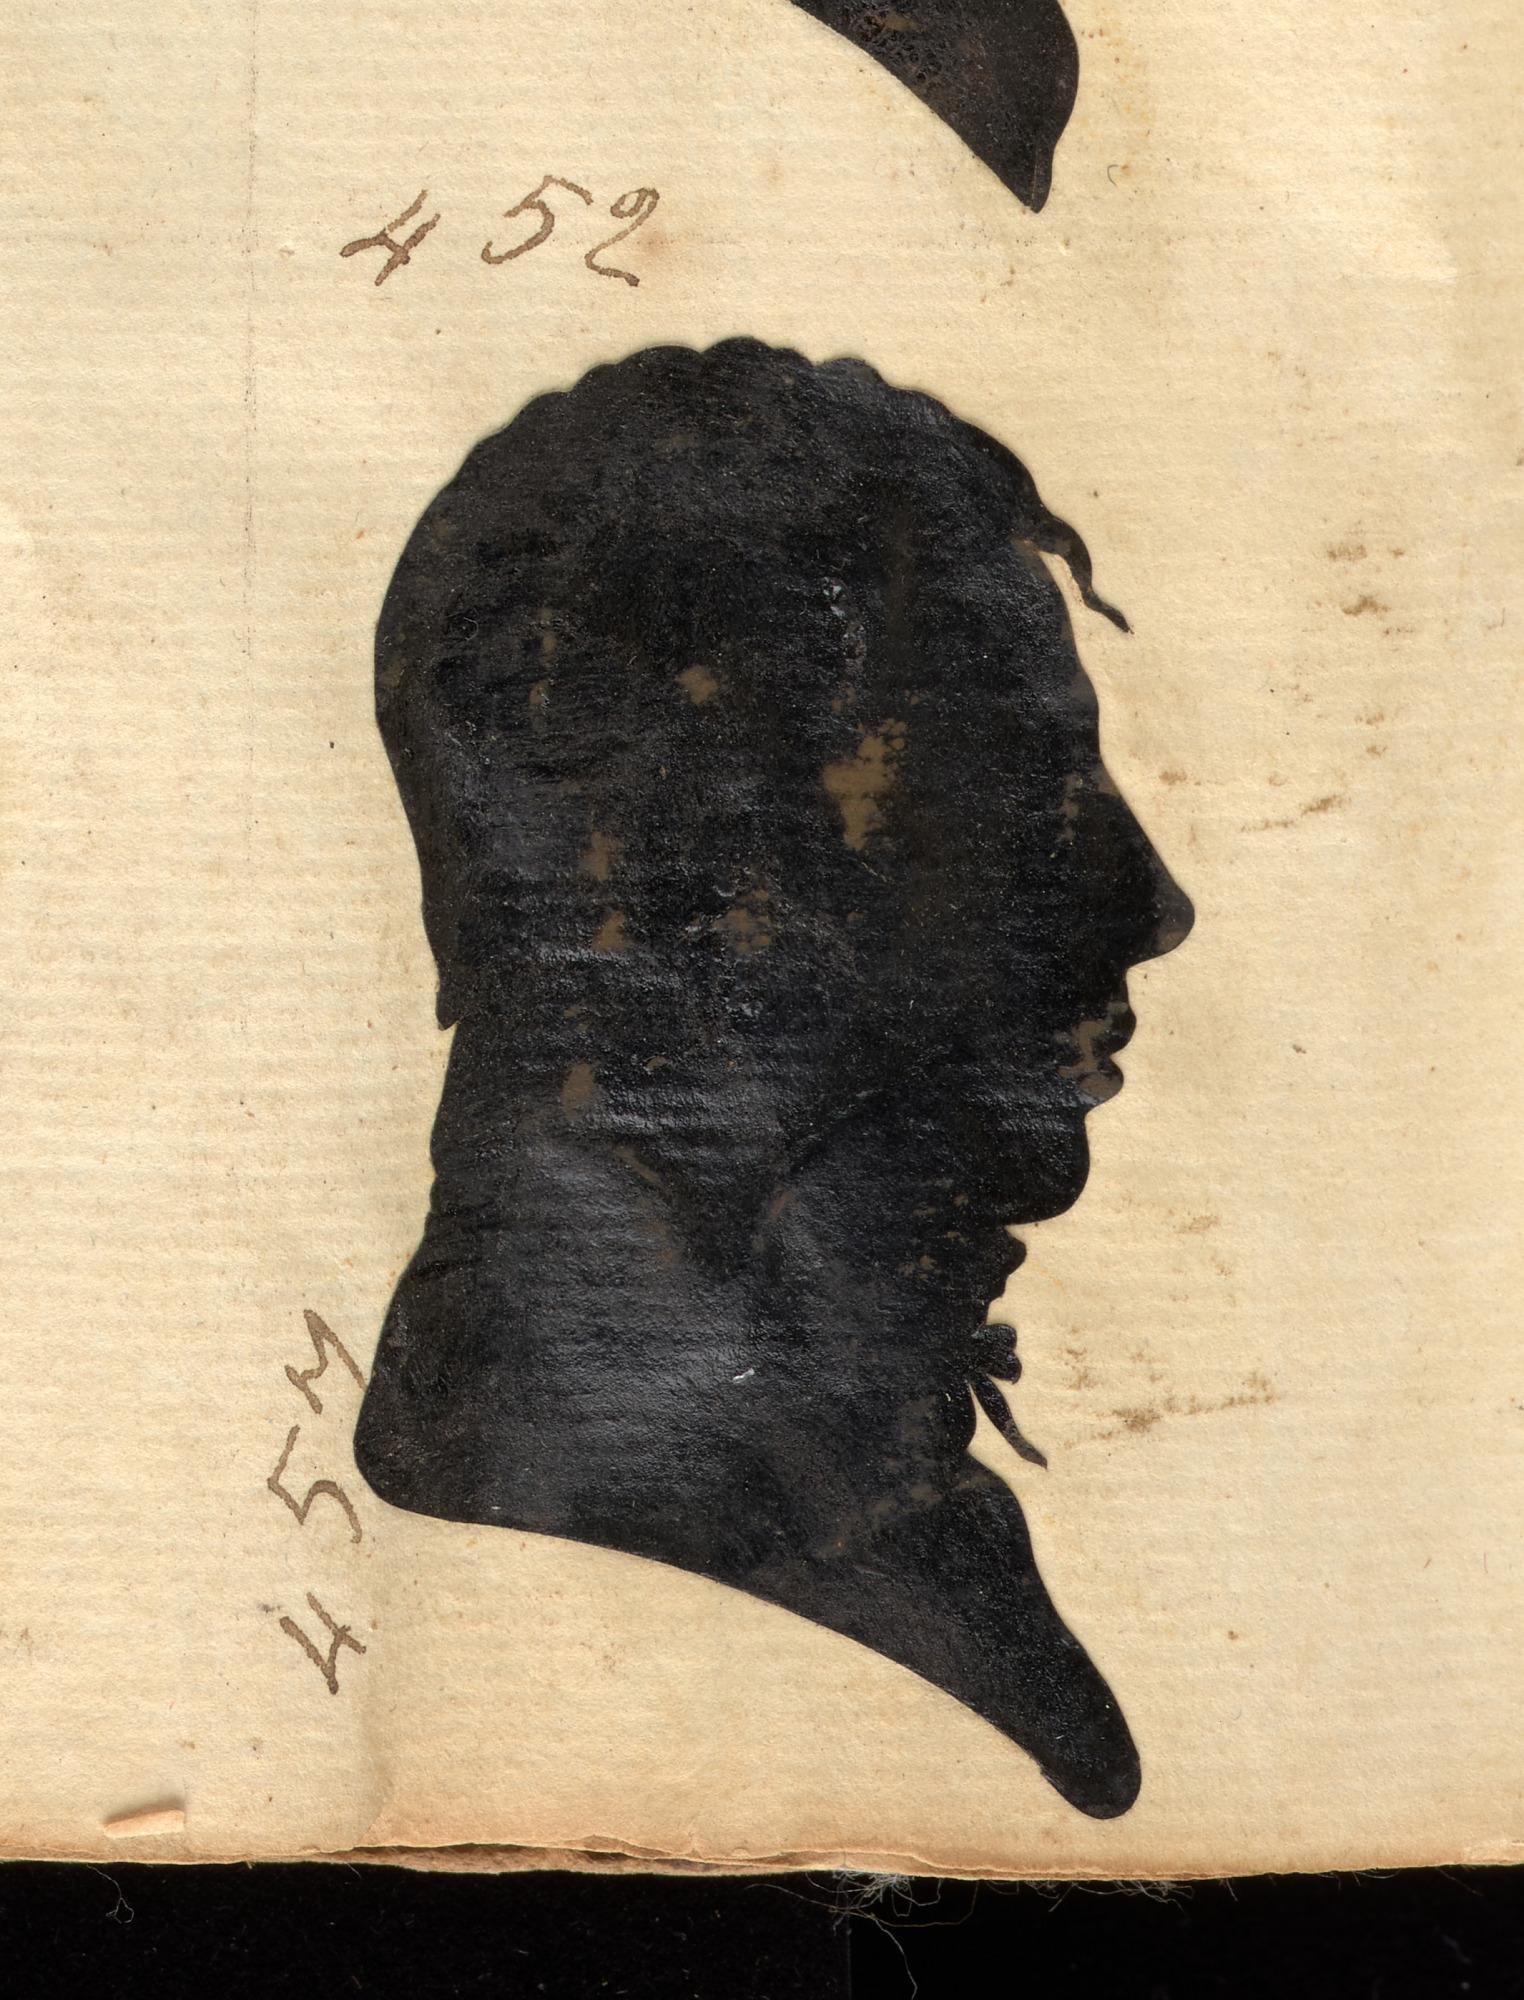 452
45M